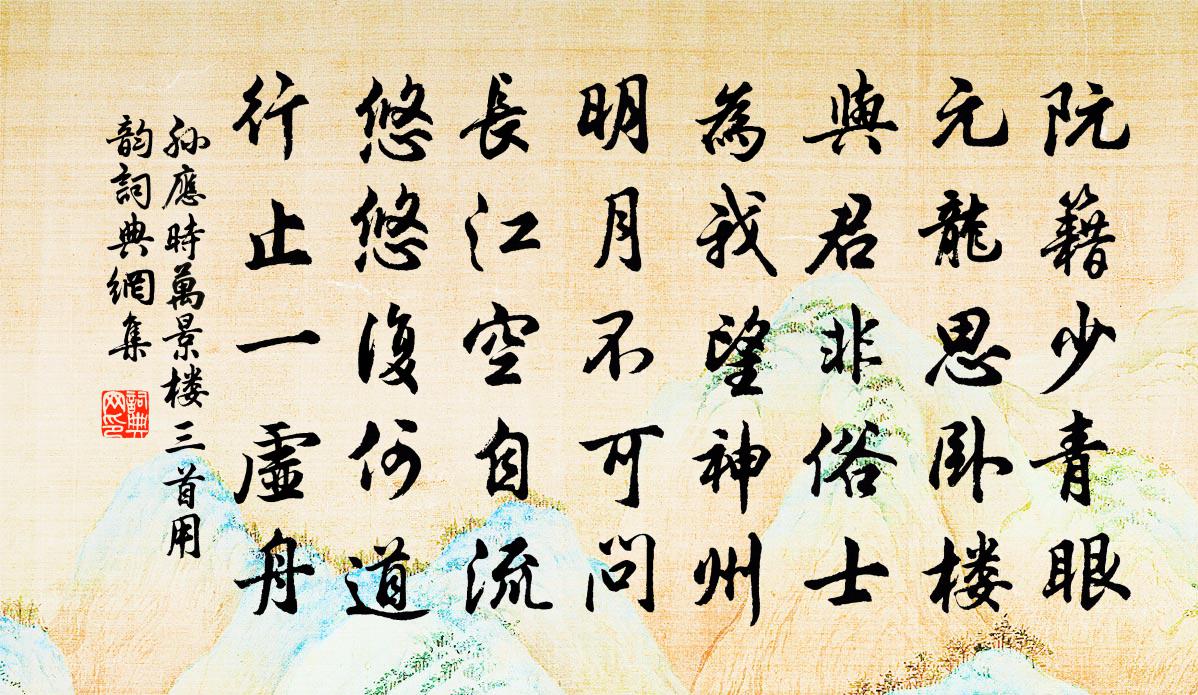 阮籍少青眼
元龍思卧楼
與君非俗士
為我望神州
明月不可問
長江空自流
悠悠復何道
行止一虛舟
孫應時萬景楼三首用
韵詞典網集
詞典
网印